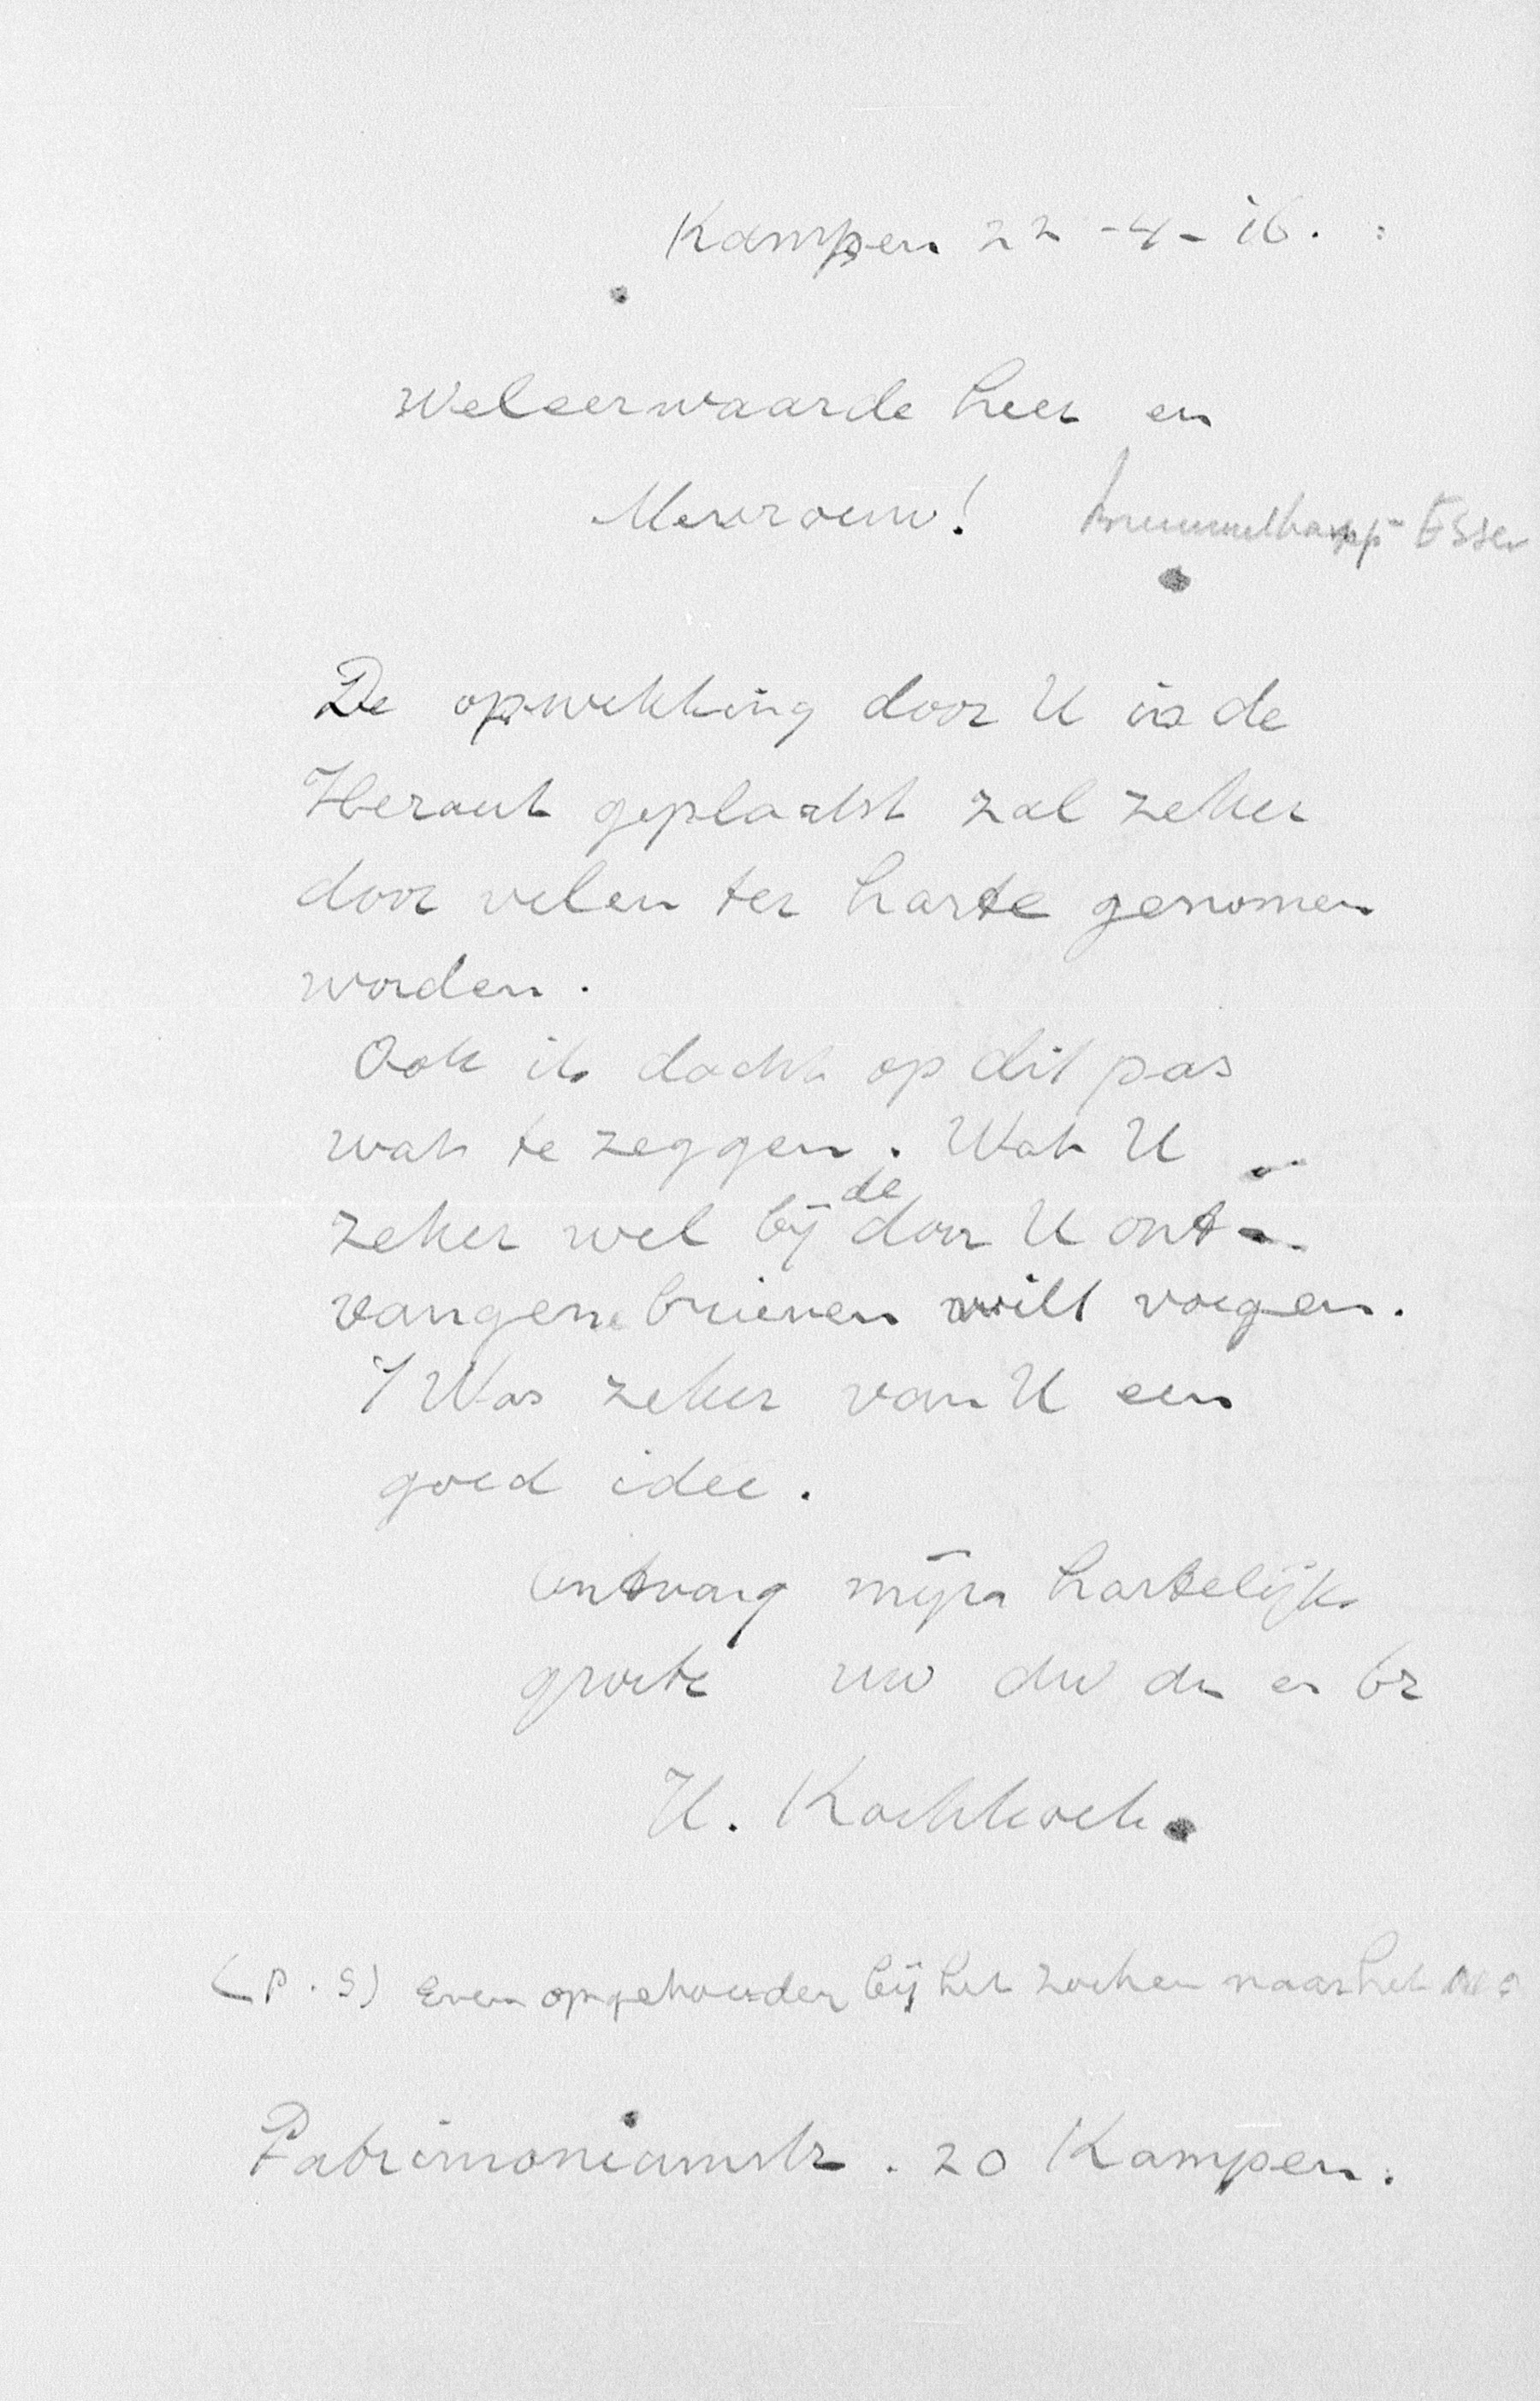 Kampen 22-4-16.
Weleerwaarde heer en
Mevrouw! Brummelkamp-Esser
De opwekking door U in de
Heraut geplaatst zal zeker
door velen ter harte genomen
worden.
Ook ik dacht op dit pas
wat te zeggen. Wat U
zeker wel bij de door U ont-
vangene brieven wilt voegen.
't Was zeker van U een
goed idee.
Ontvang mijn hartelijk
groete uw dw dn en br
H. Kochkoek.
(P.S) Even opgehouden bij het zoeken naar het
Patrimoniumstr. 20 Kampen.